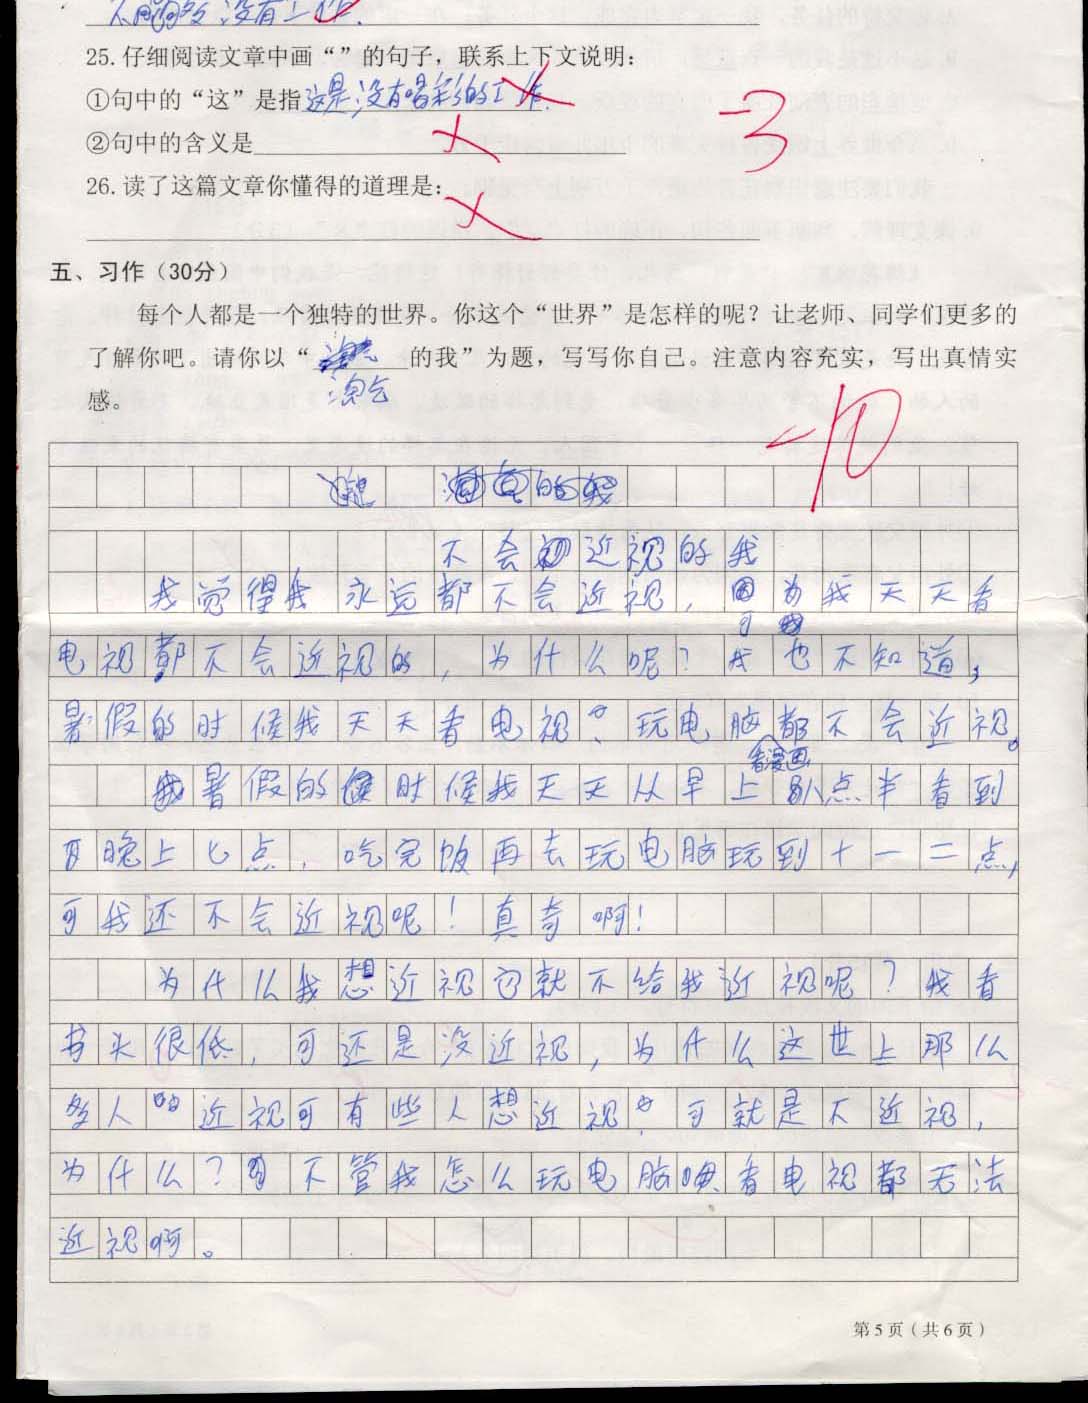 没有工作.
25.仔细阅读文章中画“”的句子，联系上下文说明：
①句中的“这”是指这是没有喝彩的工作.
②句中的含义是
-3
26.读了这篇文章你懂得的道理是：
五、习作（30分）
每个人都是一个独特的世界。你这个“世界”是怎样的呢？让老师、同学们更多的
了解你吧。请你以“ 的我”为题，写写你自己。注意内容充实，写出真情实
淘气
感。
-10
不会近视的我
我觉得我永远都不会近视，因为我天天看
可
电视都不会近视的，为什么呢？我也不知道，
暑假的时候我天天看电视、玩电脑都不会近视。
看漫画
暑假的时候我天天从早上八点半看到
晚上七点，吃完饭再去玩电脑玩到十一二点，
可我还不会近视呢！真奇啊！
为什么我想近视它就不给我近视呢？我看
书头很低，可还是没近视，为什么这世上那么
多人的近视可有些人想近视 可就是不近视，
为什么？不管我怎么玩电脑 看电视都无法
近视啊。
第5页（共6页）